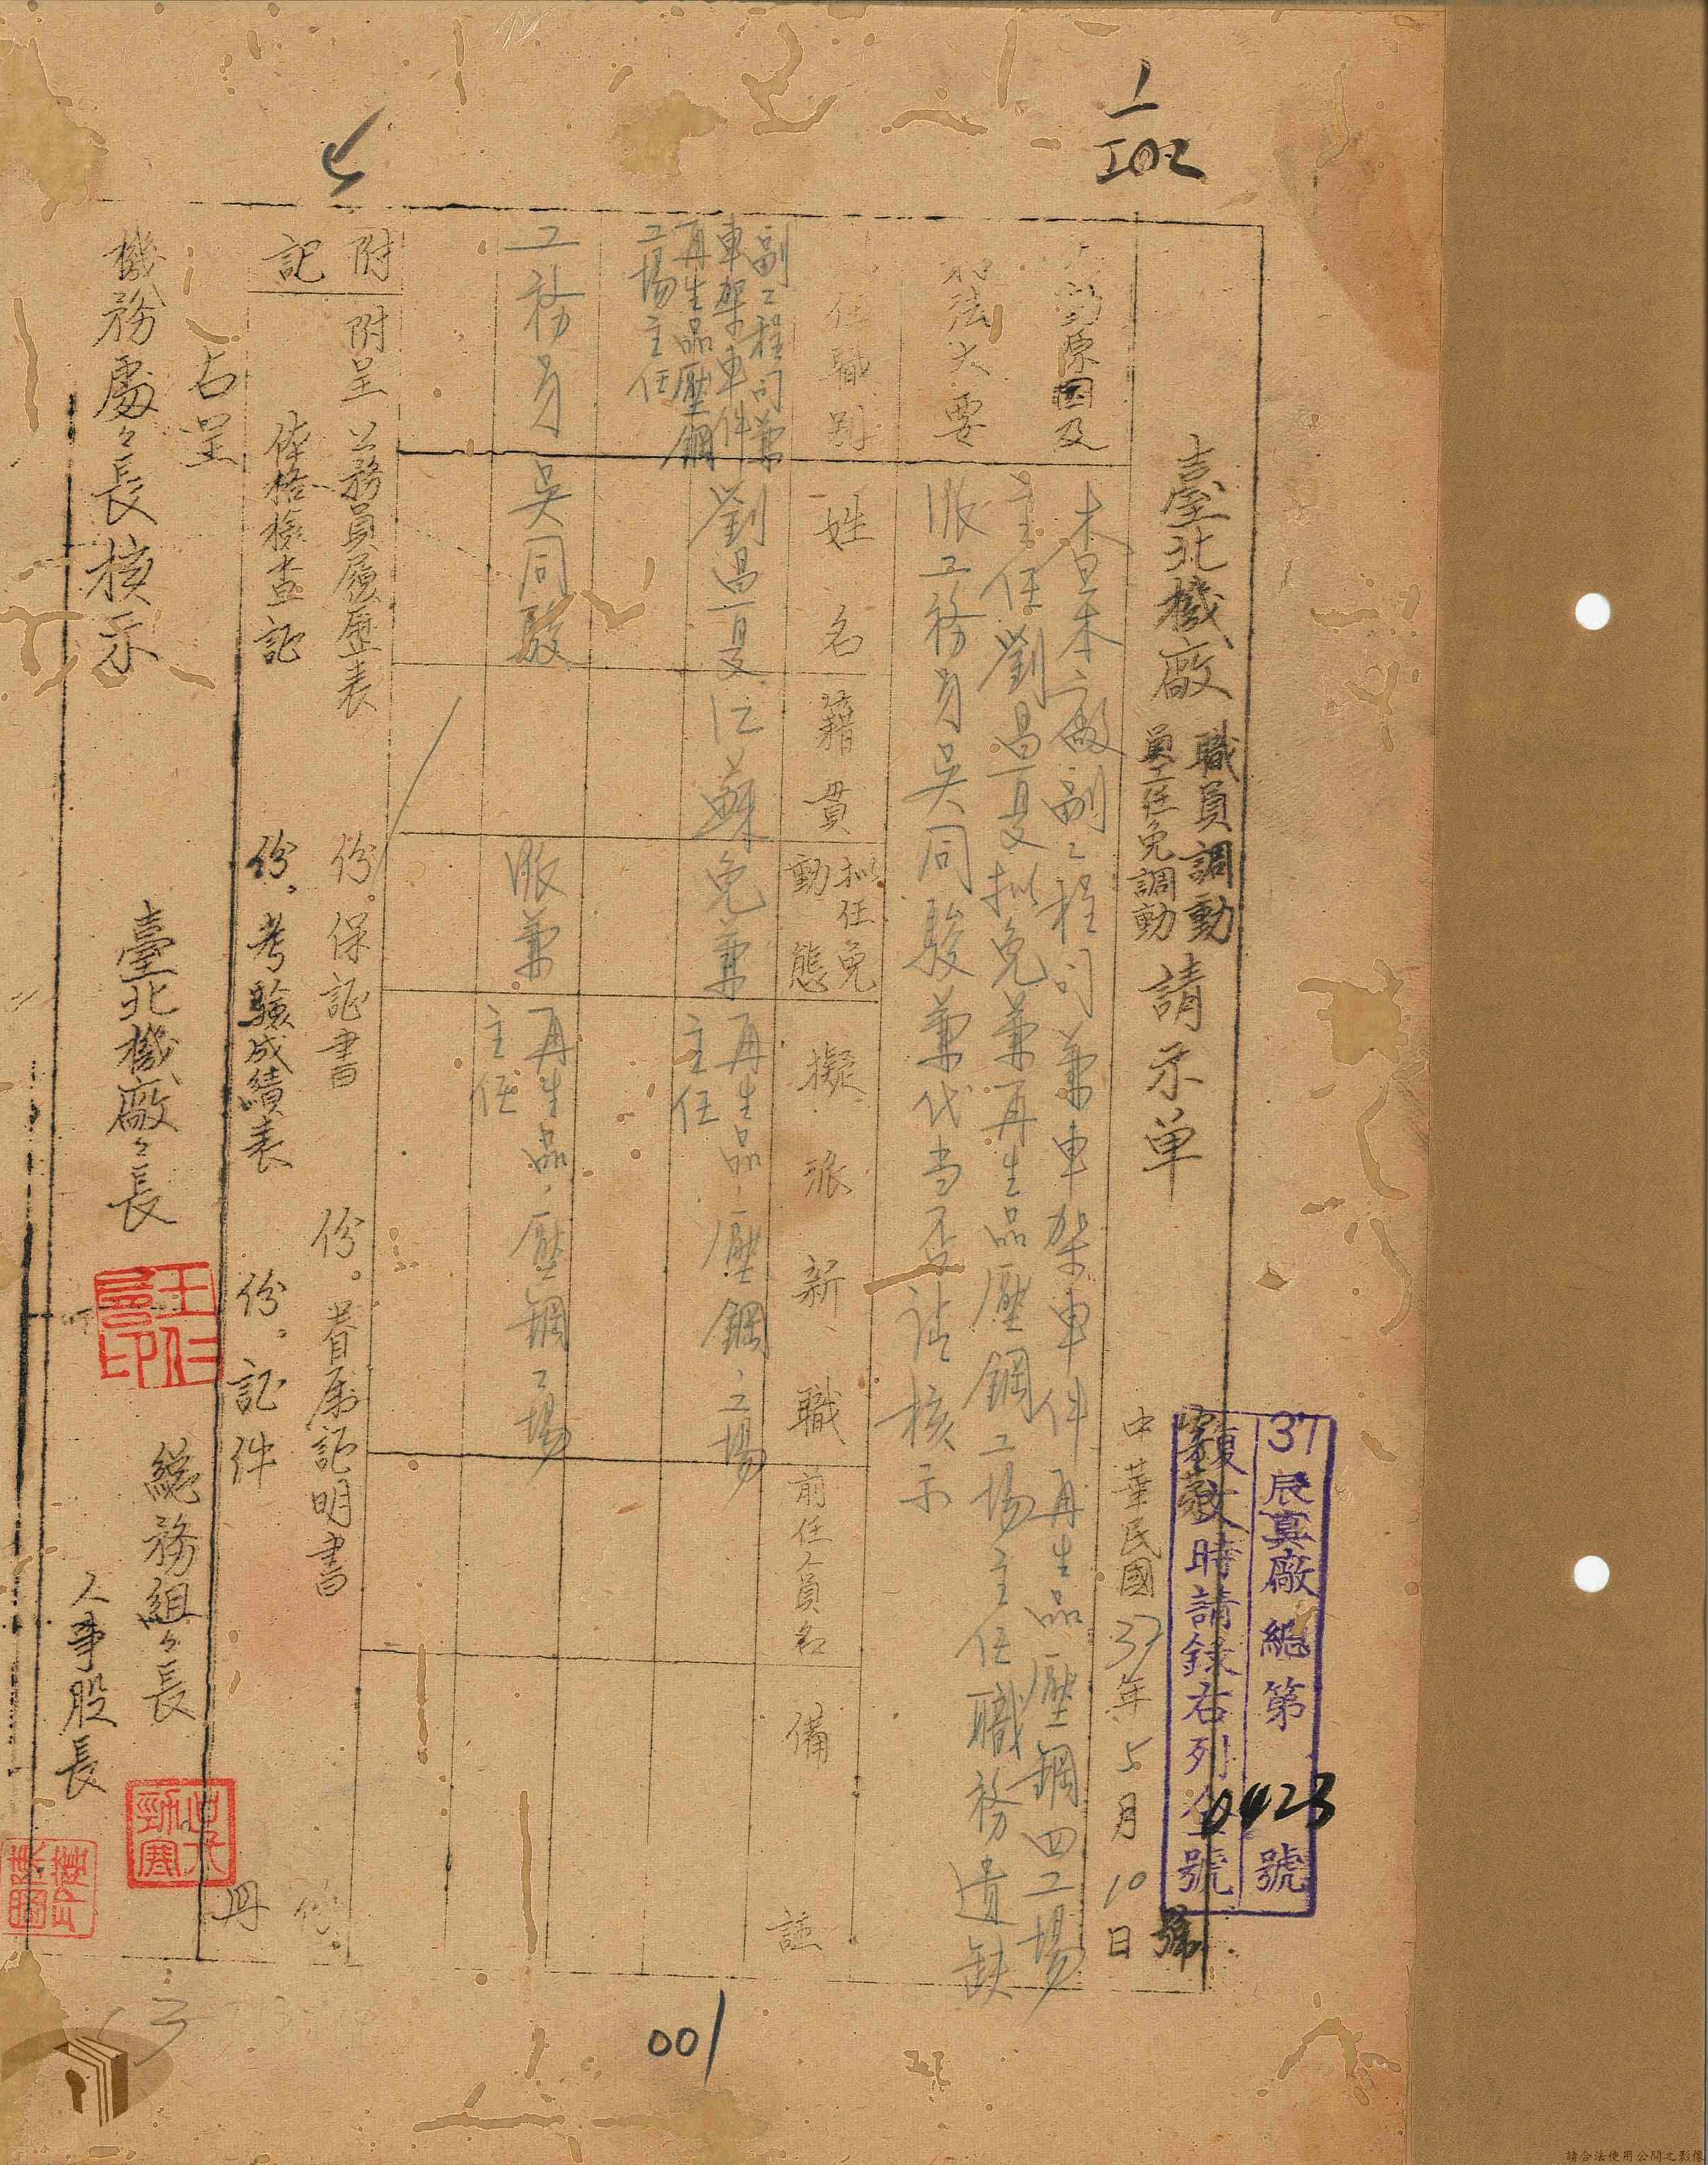 1
102
37辰真廠總第0423號
覆文時請錄右列全號
號
臺北機廠
職員調動
員工任免調動
請示单
中華民國37年5月10日
原因及
办法大要
查本廠副工程司兼車架車件再生品壓鋼四工場
主任劉昌夏拟免兼再生品壓鋼工場主任職務遺缺
派工務員吳同駿兼代当否請核示
任職別
姓名
籍貫
拟任免
動態
擬派新職
前任人員名
備註
副工程司兼
車架車件
再生品壓鋼
工場主任
劉昌夏
江蘇
免兼
再生品、壓鋼、工場
主任
工務員
吳同駿
派兼
再生品、壓鋼工場
主任
附記
附呈
公務員履歷表 份。保証書 份。眷屬証明書 份。
体格檢查証 份。考驗成績表 份。証件 冊
右呈
機務處々長核示
臺北機廠々長
總務組々長
人事股長
001
請合法使用公開之影像